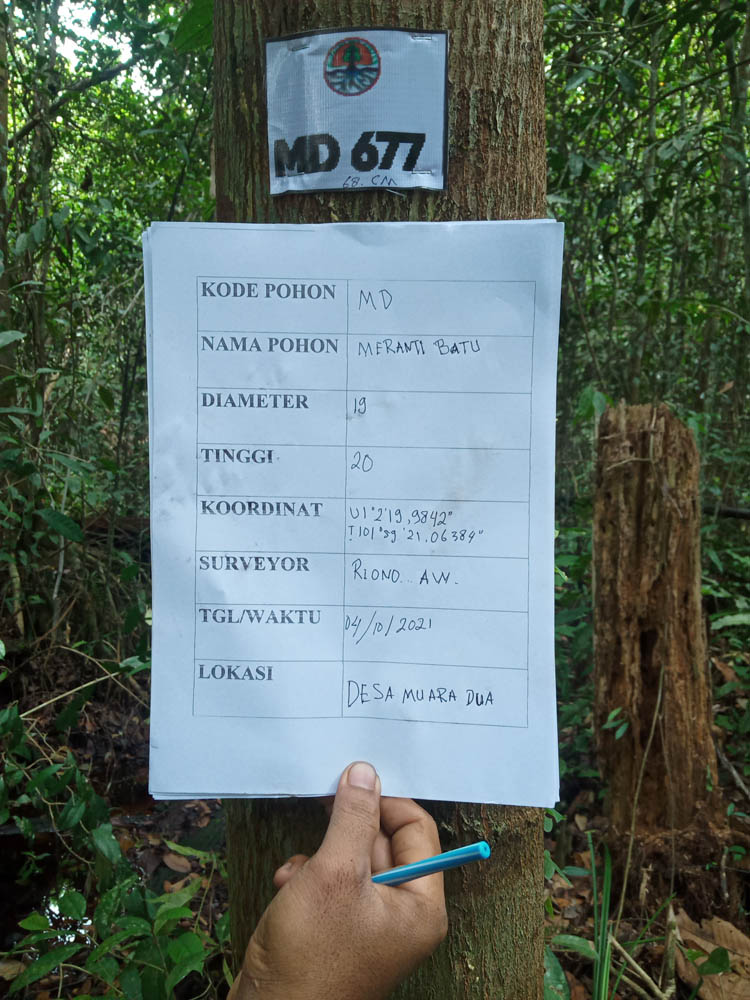 MD 677
68. CM
KODE POHON MD
NAMA POHON MERANTI BATU
DIAMETER 19
TINGGI 20
KOORDINAT U1°2'19,9842"
T101°39'21.06384"
SURVEYOR RIONO... AW.
TGL/WAKTU 04/10/2021
LOKASI DESA MUARA DUA